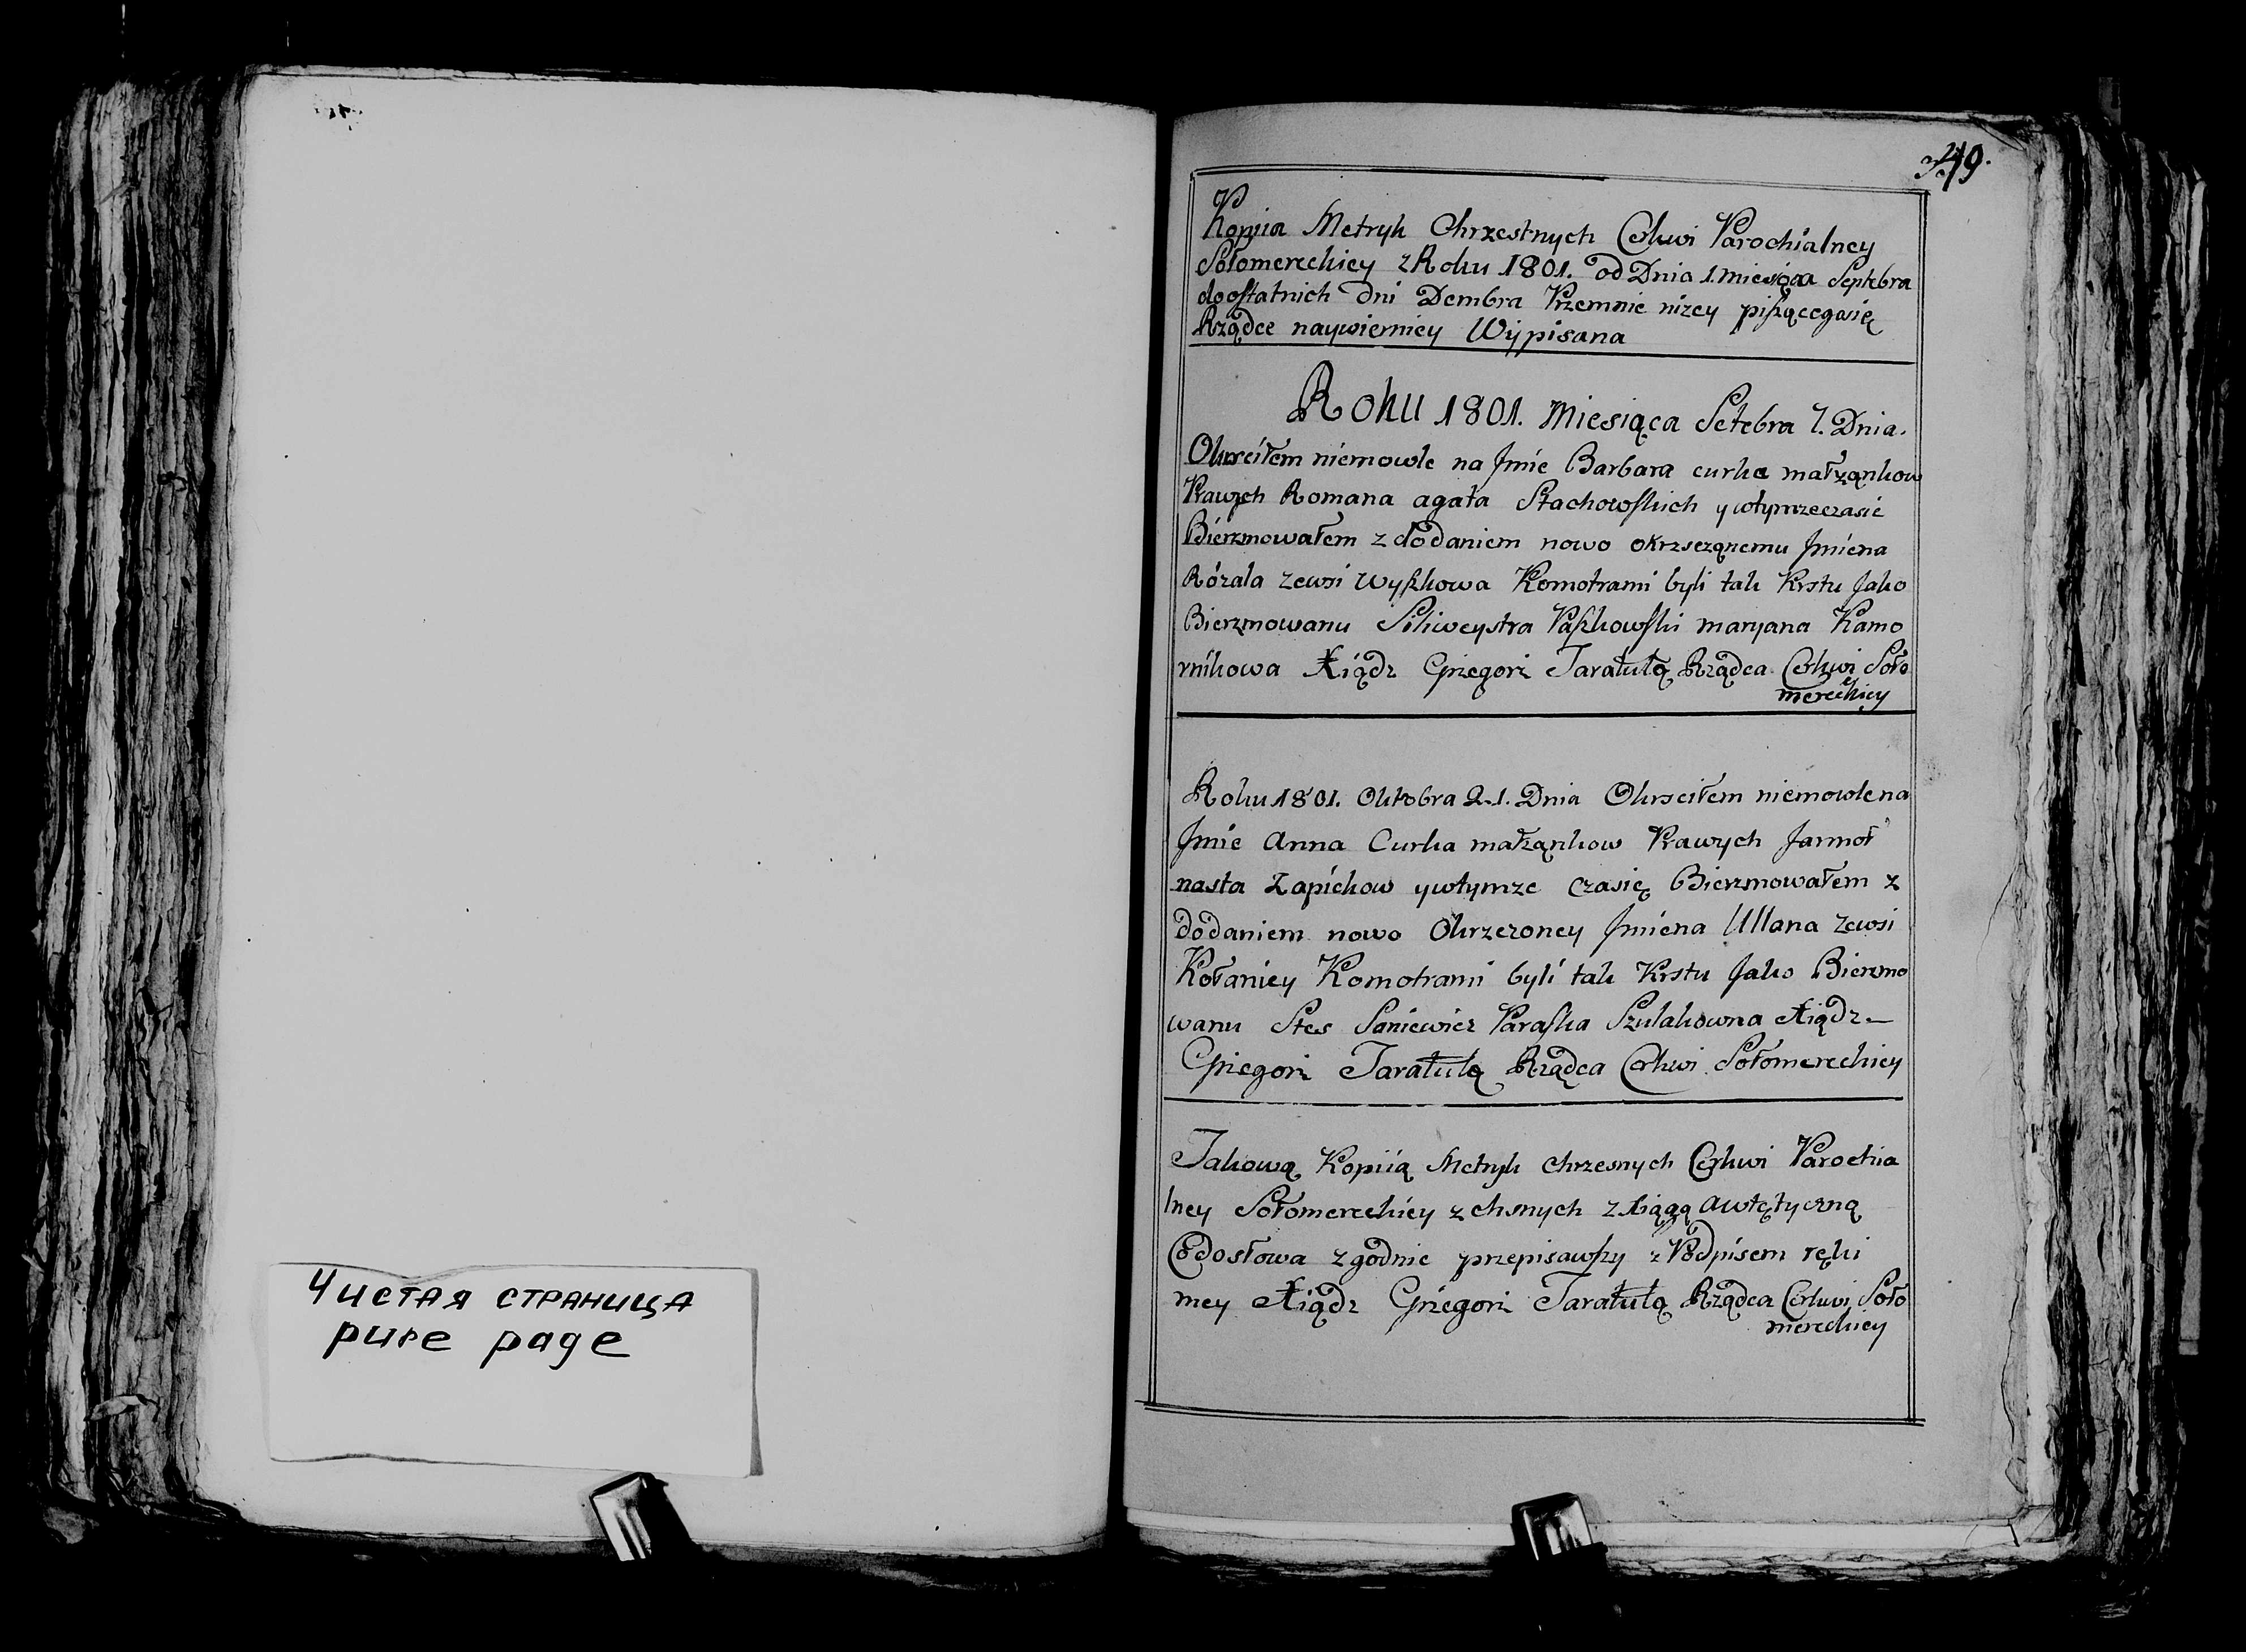 Чистая страница
pure page
49.
Kopiia Metryk Chrzestnych Cerkwi Parochialney
Sołomereckiey z Roku 1801. od Dnia 1. miesiąca Septebra
doostatnich dni Dembra Przemnie niżey piszącegasię
Rządce naywierniey Wypisana
Roku 1801. Miesiąca Setebra 7. Dnia.
Okrsciłem niemowle na Jmie Barbara curka małząnkow
Prawych Romana agata Stachowskich ywtymzeczasie
Bierzmowałem z dodaniem nowo okrzscząnemu Jmiena
Rózala zewsi Wyszkowa Komotrami byli tak Krstu Jako
Bierzmowanu Siliweystra Paszkowski maryana Kamo
rnikowa Xiądz Grzegorz Taratutą Rządca Cerkwi Soło
mereckiey
Roku 1801. Oktobra 21. Dnia Okrsciłem niemowlena
Jmie Anna Curka małząnkow Prawych Jarmoł
nasta Łapickow ywtymze czasię Bierzmowałem z
dodaniem nowo Okrzczoney Jmiena Ullana zewsi
Kołaniey Komotrami byli tak Krstu Jako Bierzmo
wanu Stes Saniewicz Paraska Szulakowna Xiądz
Grzegorz Taratutą Rządca Cerkwi Sołomereckiey
Takową Kopiią Metryk chrzesnych Cerkwi Parochia
lney Sołomereckiey zchsnych z Xiągą awtętyczną
Codosłowa zgodnie przepisawszy z Podpisem ręki
mey Xiądz Grzegorz Taratutą Rządca Cerkwi Soło
mereckiey